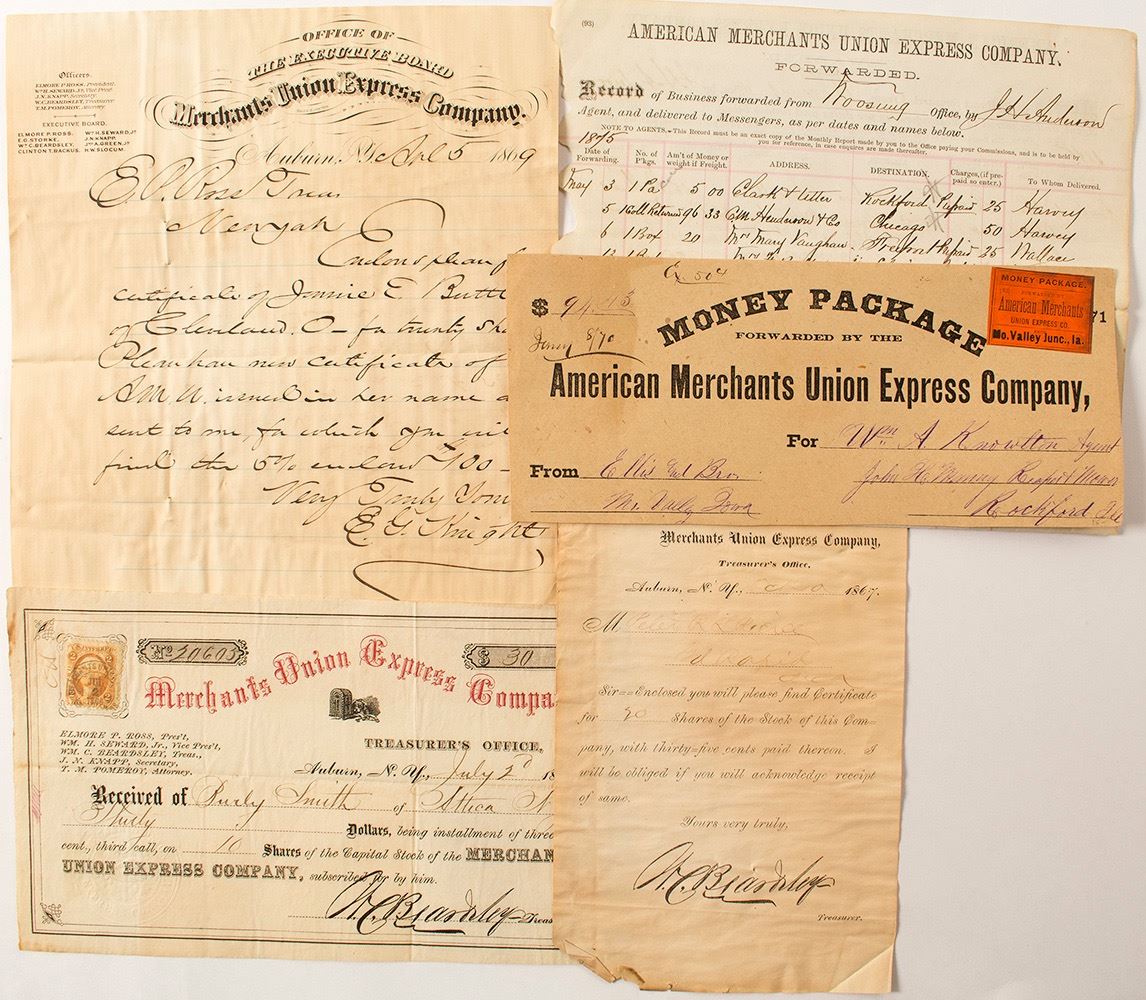 OFFICE OF
THE EXECUTIVE BOARD
Merchants Union Express Company.
Officers.
ELMORE P. ROSS, President.
WM. H. SEWARD, Jr, Vice Prest.
J. N. KNAPP, Secretary.
W. C. BEARDSLEY, Treasurer
T. M. POMEROY, Attorney.
EXECUTIVE BOARD.
ELMORE P. ROSS. WM. H. SEWARD, Jr
E. G. STORKE, J. N. KNAPP,
WM. C. BEARDSLEY, JNO. A. GREEN, Jr.
CLINTON T. BACKUS. H. W. SLOCOM.
Auburn, N.Y. 5 1869
Ross Treas
certificate of Jennie E. Buttl
of Cleveland. O - for twenty sha
Please have new certificate of
A.M.U. issued in her name a
sent to me, for which you wil
find the 5% enclosed $100 -
Very Truly Yours
E. G. Knight
(93)
AMERICAN MERCHANTS UNION EXPRESS COMPANY.
FORWARDED.
Record of Business forwarded from Woosung Office, by J H Anderson
Agent, and delivered to Messengers, as per dates and names below.
NOTE TO AGENTS.-This Record must be an exact copy of the Monthly Report made by you to the Office paying your Commissions, and is to be held by
you for reference, in case enquires are made thereafter.
1875
Date of Forwarding. No. of P'kgs. Am't of Money or weight if Freight. ADDRESS. DESTINATION. Charges, (if pre-paid so enter.) To Whom Delivered.
May 3 1 Pac 5 00 Clark & Rockford Prepaid 25 Harvey
5 1 Coll Returned 96 33 C.M. Henderson & Co Chicago 50 Harvey
6 1 Box 20 Mrs Mary Vaughan Freeport Prepaid 25 Wallace
50c
$ 94.15
8/70
MONEY PACKAGE
FORWARDED BY THE
American Merchants Union Express Company,
MONEY PACKAGE.
FORWARDED BY
American Merchants
UNION EXPRESS CO.
Mo. Valley Junc., Ia.
71
For Wm A Knowlton Agent
From Ellis Bro.
John H. Manny Reaper & Mower
Mo. Valley Iowa
Rockford Ill
Merchants Union Express Company,
Treasurer's Office,
Auburn, N. Y., 1867.
M
Sir==Enclosed you will please find Certificate
for 20 Shares of the Stock of this Com=
pany, with thirty=five cents paid thereon. I
will be obliged if you will acknowledge receipt
of same.
Yours very truly,
W. C. Beardsley
Treasurer.
No 20605
$ 30
Merchants Union Express Compa
ELMORE P. ROSS, Pres't,
WM. H. SEWARD, Jr., Vice Pres't,
WM. C. BEARDSLEY, Treas.,
J. N. KNAPP, Secretary,
T. M. POMEROY, Attorney.
TREASURER'S OFFICE,
Auburn, N. Y., July 2d 18
Received of Purly Smith of Ithaca N
Thirty Dollars, being installment of three
cent., third call, on 10 Shares of the Capital Stock of the MERCHAN
UNION EXPRESS COMPANY, subscribed for by him.
W. C. Beardsley Treas